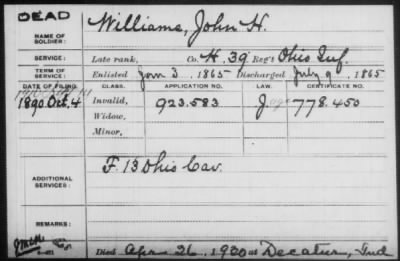 DEAD
NAME OF SOLDIER: Williams, John H.
SERVICE: Late rank, Co. H, 39 Reg't Ohio Inf.
TERM OF SERVICE: Enlisted Jan 3, 1865 Discharged July 9, 1865
DATE OF FILING. CLASS. APPLICATION NO. LAW. CERTIFICATE NO.
1890 Oct. 4 Invalid, 923.583 778.450
Widow,
Minor,
ADDITIONAL SERVICES: F. 13 Ohio Cav.
REMARKS:
Died Apr 26, 1920 at Decatur, Ind